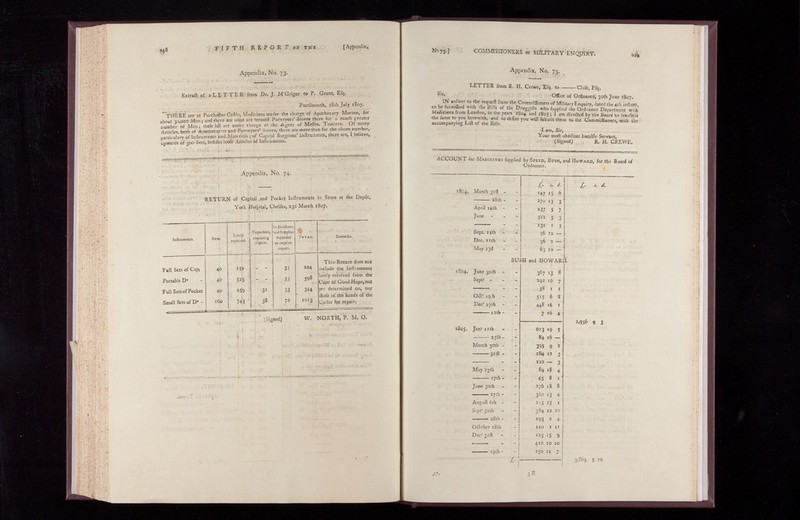 FIFTH REPORT OF THE [Appendix,
Appendix, No. 73.
Extract of a LETTER from Dr. J. M'Grigor to P. Grant, Esq.
Portsmouth, 18th July 1807.
THERE are at Porchester Castle, Medicines under the charge of Apothecary Morton, for
about 32000 Men; and there are or are treated Purveyors' stores there for a much greater
number of Men; these last are under charge of the Agent of Messrs. Trotters. Of many
Articles, both of Apothecaries and Purveyors' stores, there are more than for the above number,
particularly of Instruments and Materials; of Capital Surgeons' Instruments, there are, I believe,
upwards of 500 Sets, besides loose Articles of Instruments.
Appendix, No. 74.
RETURN of Capital and Pocket Instruments in Store at the Depôt,
York Hospital, Chelsea, 23d March 1807.
Instruments. New. Lately repaired. TOTAL. Remarks.
Full Sets of Cap1 40 - - 224
Portable Do 40 525 - - 598
Full Sets of Pocket 40 259 344
Small Sets of Do - 160 743 38 72 1013
This Return does not
include the Instruments
lately received from the
Cape of Good Hope, not
yet determined on, nor
those in the hands of the
Cutler for repair.
(Signed) W. NORTH, P. M. O.
No 73.] COMMISSIONERS OF MILITARY ENQUIRY.
Appendix, No. 75.
LETTER from R. H. Crewe, Esq. to ——— Clift, Esq.
Office of Ordnance, 30th June 1807.
Sir,
IN answer to the request from the Commissioners of Military Enquiry, dated the 4th instant,
to be furnished with the Bills of the Druggists who supplied the Ordnance Department with
Medicines from London, in the years 1804 and 1805; I am directed by the Board to transmit
the same to you herewith, and to desire you will submit them to the Commissioners, with the
accompanying List of the Bills.
I am, Sir,
Your most obedient humble Servant,
(Signed) R. H. CREWE.
ACCOUNT for MEDICINES supplied by SPEED, BUSH, and HOWARD, for the Board of
Ordnance.
£. s. d. £. s. d.
1804. March 3rd - 147 15 6
—— 28th - 270 13 3
April 14th - 237 5 7
June - 322 5 3
131 1 3
Sept. 15th - 36 12 —
Dec. 11th - 36 2 —
May 23d - 63 10 —
BUSH and HOWARD.
1804. June 30th - 367 13 8
Sepr - 292 10 7
—— - 38 1 1
Octr 19th - 515 6 8
Decr 27th - 448 16 1
—— 12th - 7 16 4
2,936 9 3
1805. Janr 11th - 623 19 5
—— 25th - 84 16 —
March 30th - 395 9 2
—— 31st - 284 12 5
—— - 120 — 3
May 25th - 84 18 4
—— 17th - 45 8 1
June 30th - 276 18 6
—— 27th - 380 15 4
August 6th - 215 15 1
Sepr 30th - 384 12 10
—— 28th - 295 2 4
October 18th 120 1 11
Decr 31st - 125 15 9
—— - 410 10 10
—— 19th - 150 11 7
£.